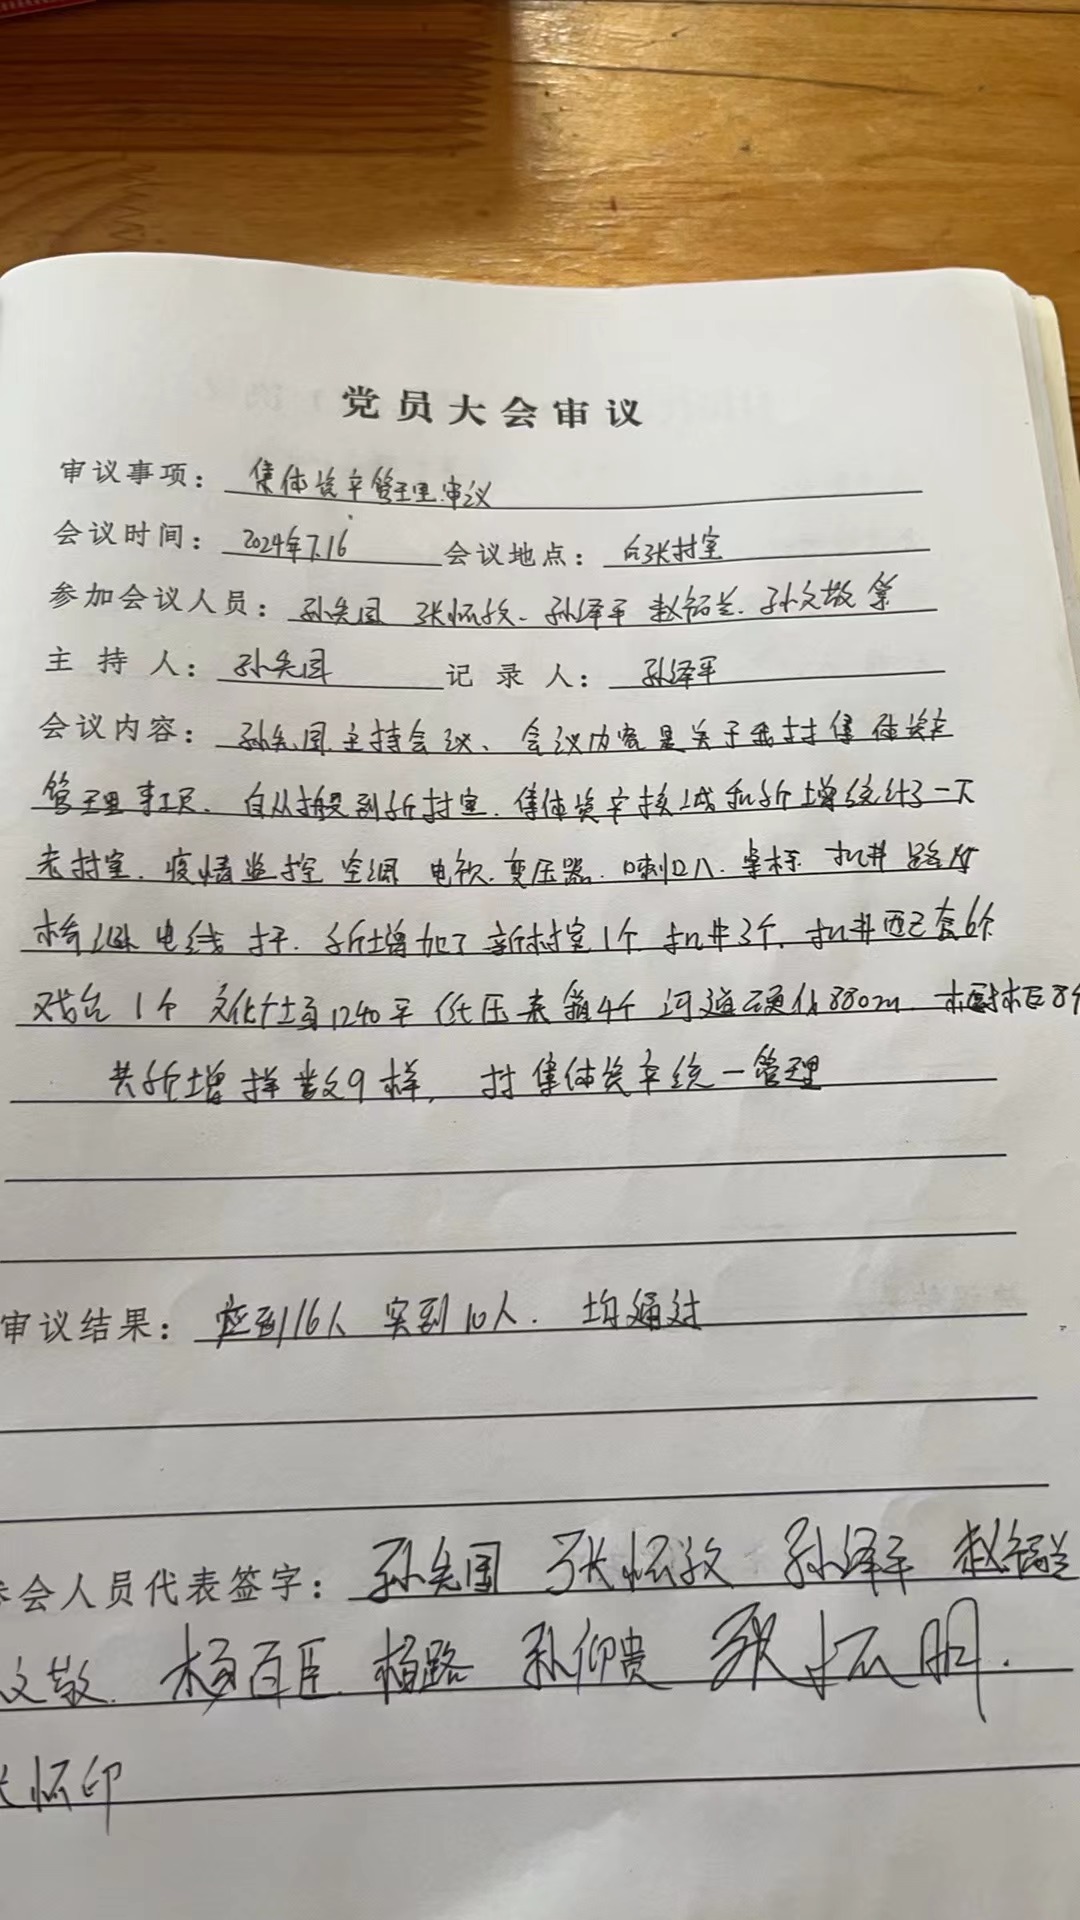 党员大会审议
审议事项：集体资产管理审议
会议时间：2024年7.16 会议地点：后张村室
参加会议人员：孙先国 张怀孜、孙泽平 赵绍兰、孙文敬 等
主持人：孙先国 记录人：孙泽平
会议内容：孙先国主持会议、会议内容是关于我村集体资产
管理事项、自从搬到新村室、集体资产核减和新增统计了一下
老村室、疫情监控 空调 电视、变压器、喇叭、桌椅 机井 路灯
核减 电线杆、新增加了新村室1个 机井3个、机井配套6个
戏台1个 文化广场1240平 低压表箱4个 河道硬化880m、橱柜8个
共新增样数9样，村集体资产统一管理
审议结果：应到16人 实到10人．均通过
参会人员代表签字：孙先国 张怀孜 孙泽平 赵绍兰
文敬、杨百臣、杨路 孙仰贵 张怀明．
怀印